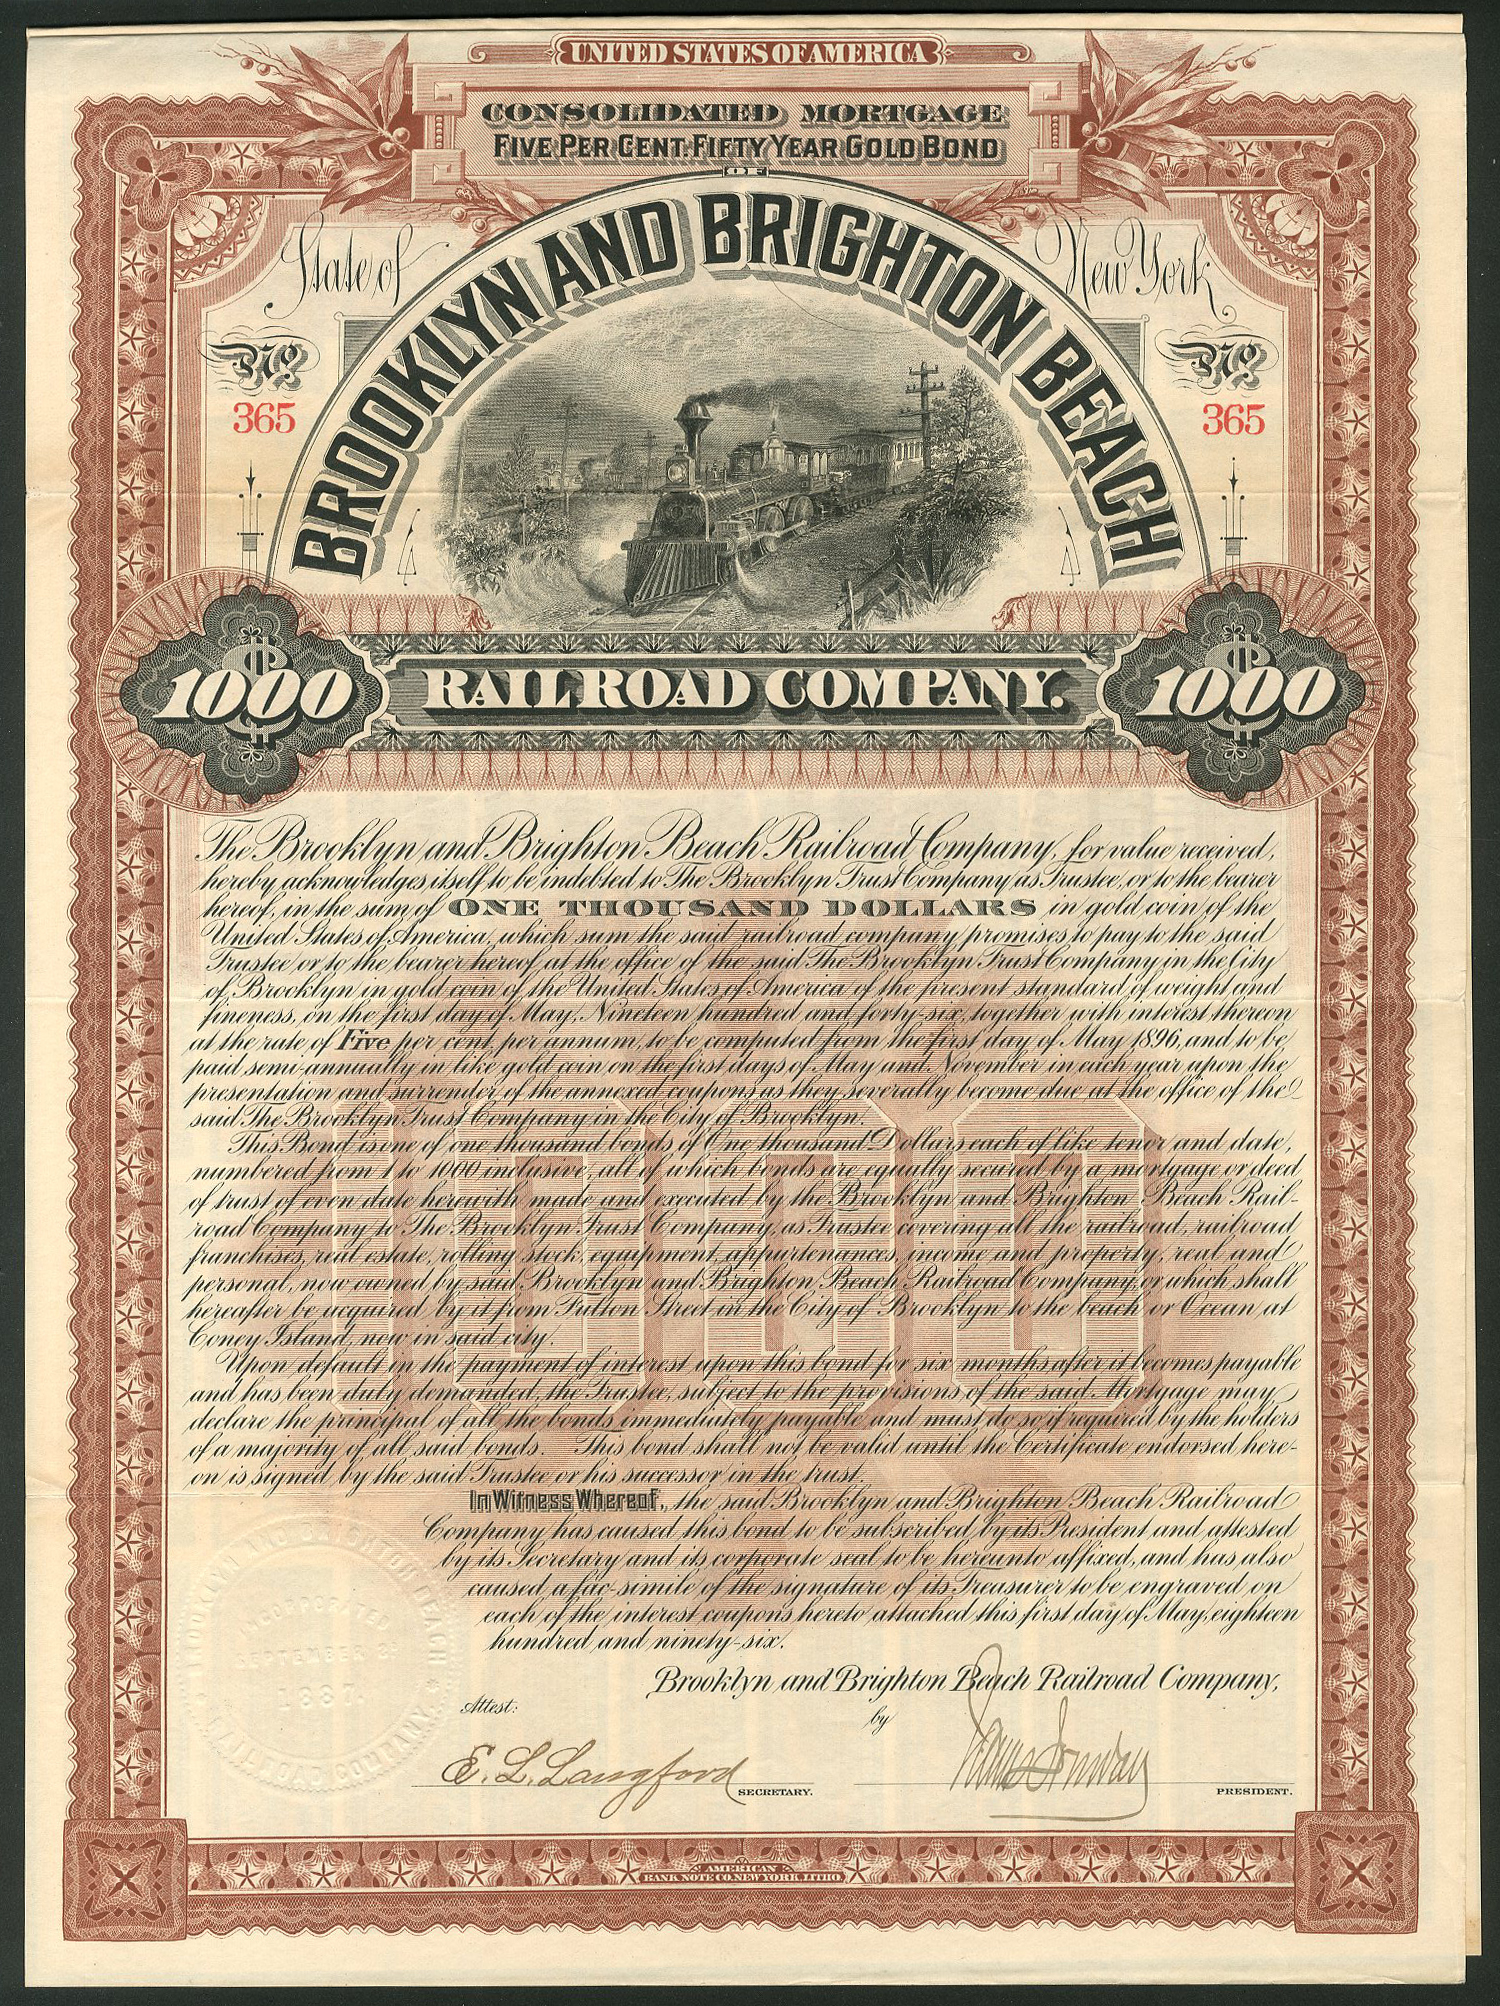 UNITED STATES OF AMERICA
CONSOLIDATED MORTGAGE
FIVE PER CENT. FIFTY YEAR GOLD BOND
OF
BROOKLYN AND BRIGHTON BEACH
State of New York
No. No.
365 365
$1000 RAILROAD COMPANY. $1000
The Brooklyn and Brighton Beach Railroad Company, for value received,
hereby acknowledges itself to be indebted to The Brooklyn Trust Company as Trustee, or to the bearer
hereof, in the sum of ONE THOUSAND DOLLARS in gold coin of the
United States of America, which sum the said railroad company promises to pay to the said
Trustee or to the bearer hereof, at the office of the said The Brooklyn Trust Company in the City
of Brooklyn in gold coin of the United States of America of the present standard of weight and
fineness, on the first day of May, Nineteen hundred and forty-six, together with interest thereon
at the rate of Five per cent. per annum, to be computed from the first day of May 1896, and to be
paid semi-annually in like gold coin on the first days of May and November in each year upon the
presentation and surrender of the annexed coupons as they severally become due at the office of the
said The Brooklyn Trust Company in the City of Brooklyn.
This Bond is one of one thousand bonds of One thousand Dollars each of like tenor and date,
numbered from 1 to 1000 inclusive, all of which bonds are equally secured by a mortgage or deed
of trust of even date herewith made and executed by the Brooklyn and Brighton Beach Rail-
road Company to The Brooklyn Trust Company, as Trustee covering all the railroad, railroad
franchises, real estate, rolling stock, equipment, appurtenances, income and property, real and
personal, now owned by said Brooklyn and Brighton Beach Railroad Company, or which shall
hereafter be acquired by it from Fulton Street in the City of Brooklyn to the beach or Ocean at
Coney Island, now in said city.
Upon default in the payment of interest upon this bond for six months after it becomes payable
and has been duly demanded, the Trustee, subject to the provisions of the said Mortgage may
declare the principal of all the bonds immediately payable and must do so, if required by the holders
of a majority of all said bonds. This bond shall not be valid until the Certificate endorsed here-
on is signed by the said Trustee or his successor in the trust.
In Witness Whereof, the said Brooklyn and Brighton Beach Railroad
Company has caused this bond to be subscribed by its President and attested
by its Secretary and its corporate seal to be hereunto affixed, and has also
caused a fac-simile of the signature of its Treasurer to be engraved on
each of the interest coupons hereto attached this first day of May, eighteen
hundred and ninety-six.
Brooklyn and Brighton Beach Railroad Company,
Attest: by
E. L. Langford SECRETARY. James Jourdan PRESIDENT.
BROOKLYN AND BRIGHTON BEACH
RAILROAD COMPANY
INCORPORATED
SEPTEMBER
1887.
AMERICAN
BANK NOTE CO. NEW YORK, LITHO.